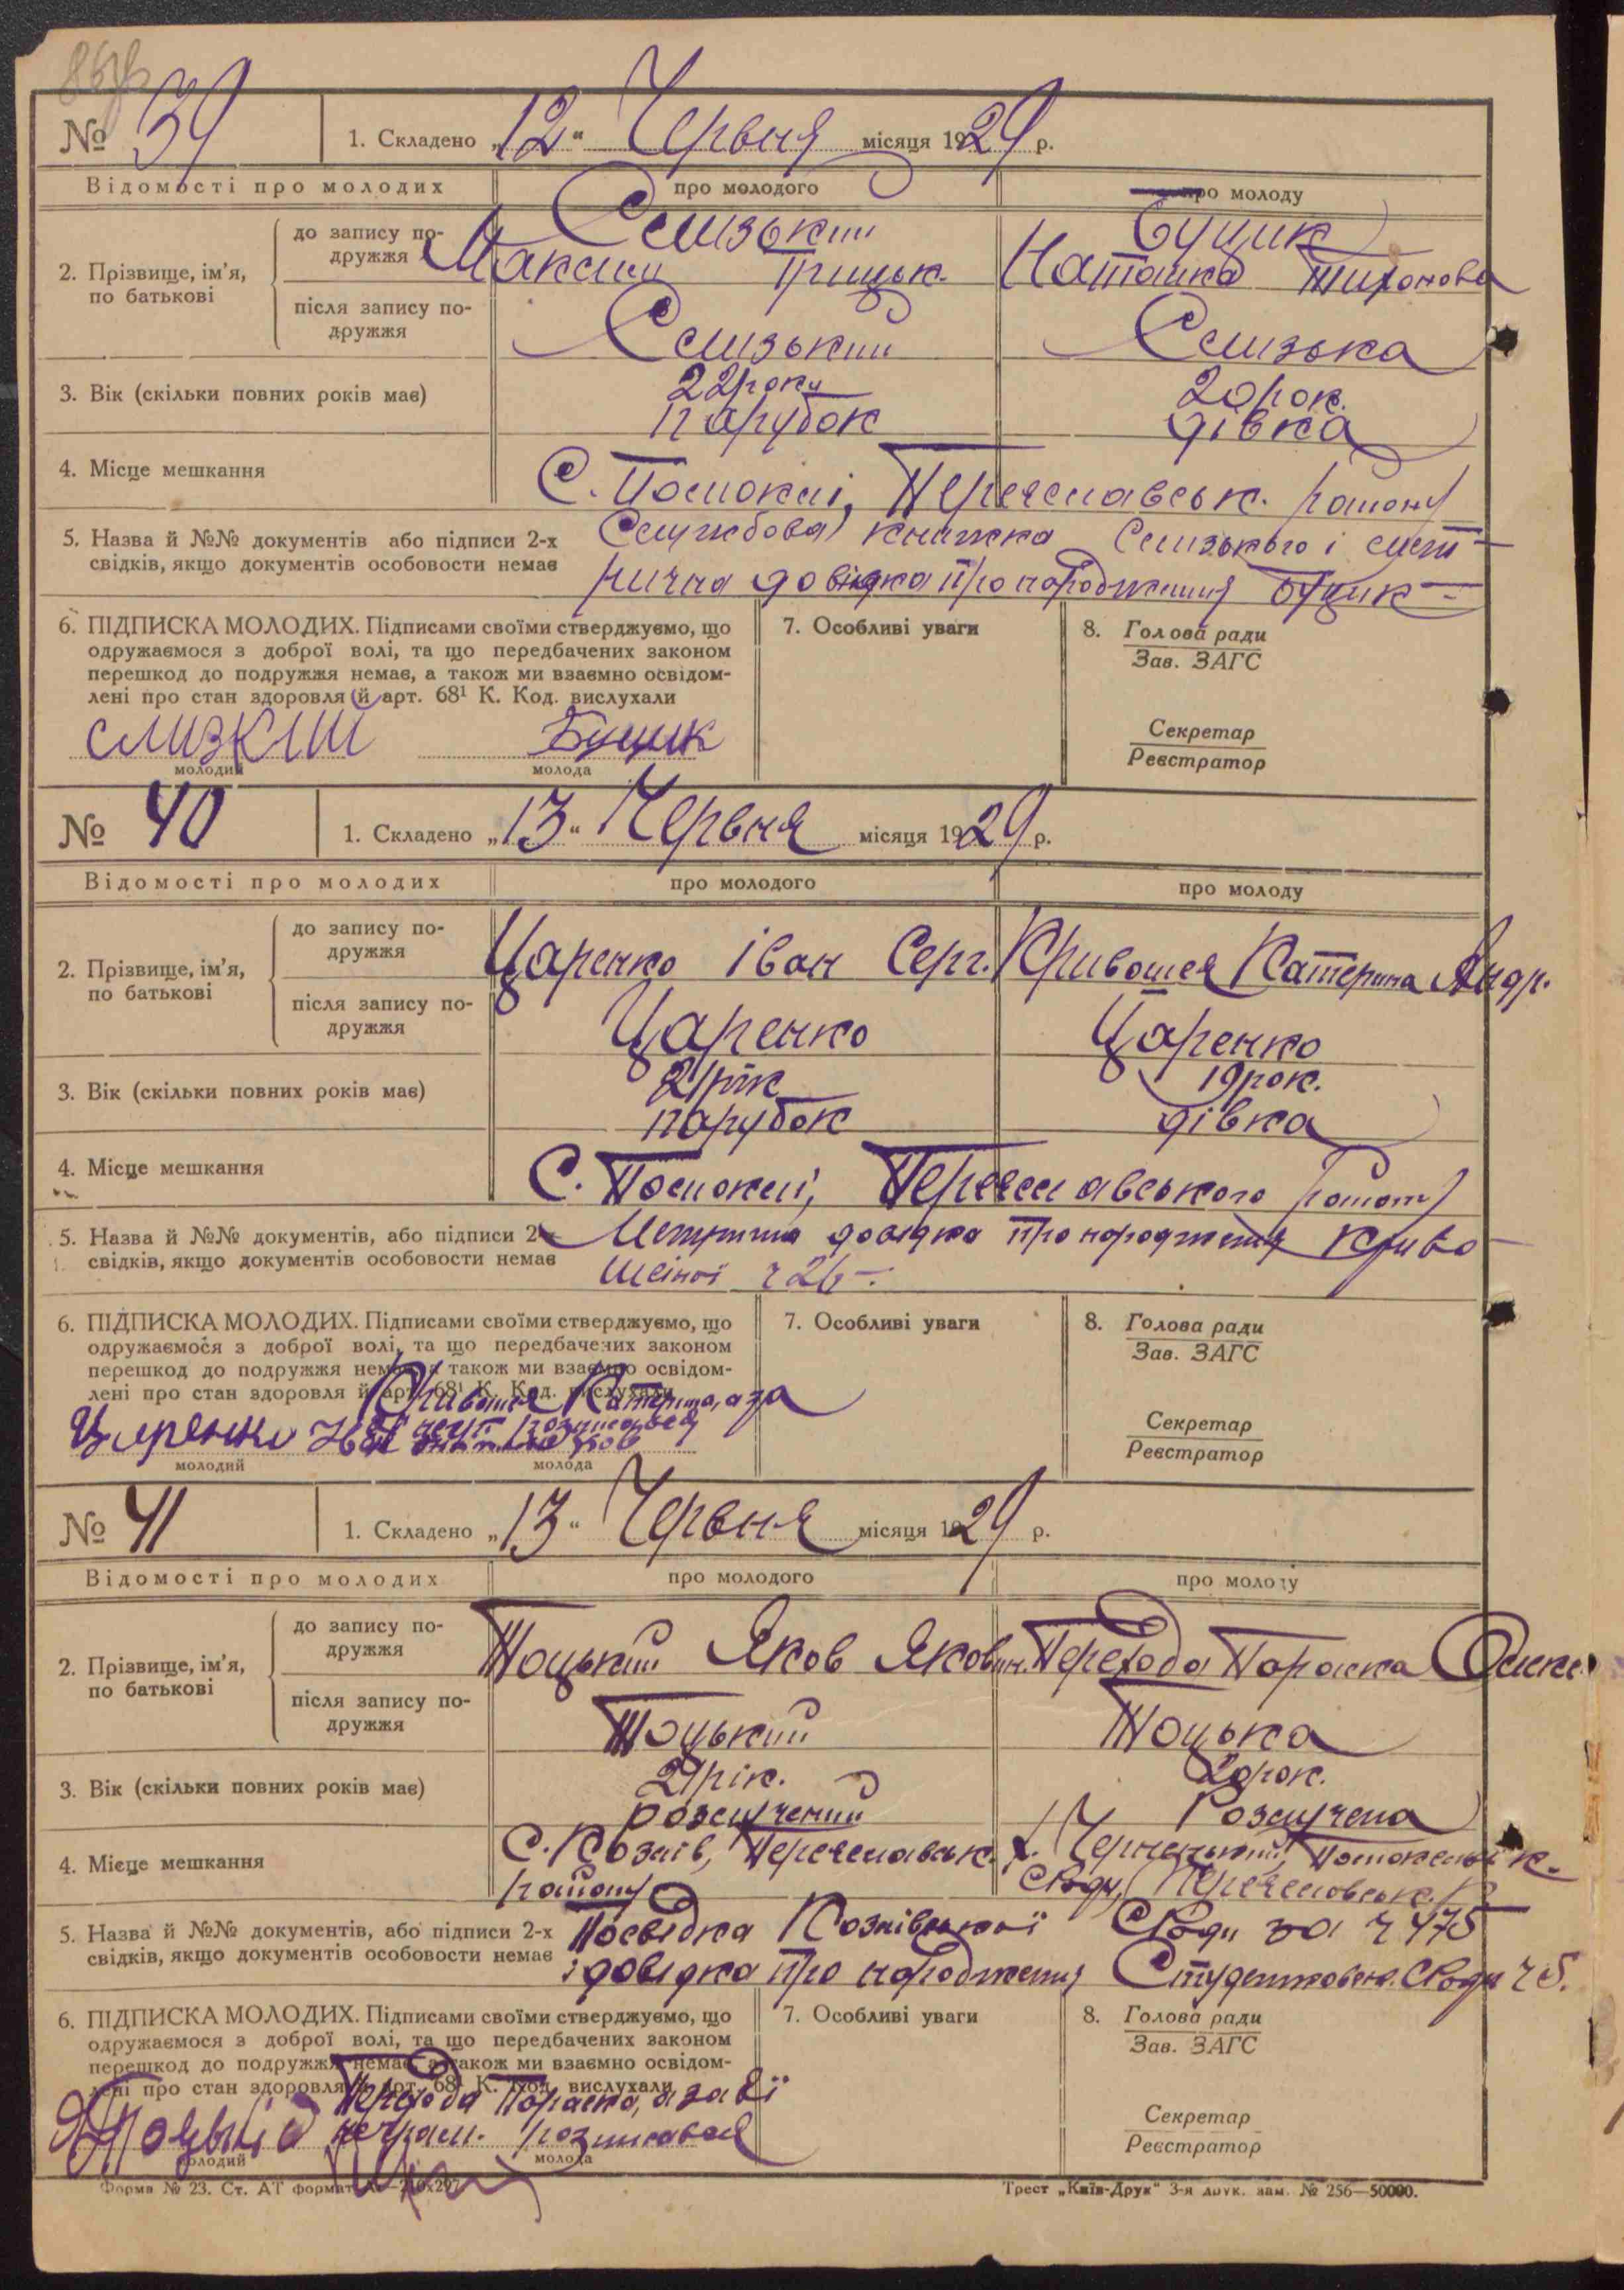 № 39
1. Складено „12“ Червня місяця 1929 р.
Відомості про молодих
про молодого
про молоду
2. Прізвище, ім’я, по батькові
до запису подружжя
Слизький
Максим Грицьк.
Буцик
Наталка Тихонова
після запису подружжя
Слизький
Слизька
3. Вік (скільки повних років має)
22 роки
парубок
20 рок.
дівка
4. Місце мешкання
С. Помоклі, Переяславськ. району
5. Назва й №№ документів або підписи 2-х
свідків, якщо документів особовости немає
Службова книжка Слизького і мет-
рична довідка про народження Буцик
6. ПІДПИСКА МОЛОДИХ. Підписами своїми стверджуємо, що
одружаємося з доброї волі, та що передбачених законом
перешкод до подружжя немає, а також ми взаємно освідом-
лені про стан здоровля й арт. 68¹ К. Код. вислухали
слизкий
Буцик
молодий
молода
7. Особливі уваги
8. Голова ради
Зав. ЗАГС
Секретар
Реєстратор
№ 40
1. Складено „13“ Червня місяця 1929 р.
Відомості про молодих
про молодого
про молоду
2. Прізвище, ім’я, по батькові
до запису подружжя
Царенко Іван Серг.
Кривошея Катерина Андр.
після запису подружжя
Царенко
Царенко
3. Вік (скільки повних років має)
21 рік
парубок
19 рок.
дівка
4. Місце мешкання
С. Помоклі, Переяславського району
5. Назва й №№ документів, або підписи 2-х
свідків, якщо документів особовости немає
Метрична довідка про народження Криво-
шеіної ч 26
6. ПІДПИСКА МОЛОДИХ. Підписами своїми стверджуємо, що
одружаємося з доброї волі, та що передбачених законом
перешкод до подружжя немає, а також ми взаємно освідом-
лені про стан здоровля й арт. 68¹ К. Код. вислухали
Кривошея Катерина, а за
Царенко
розписався
молодий
молода
7. Особливі уваги
8. Голова ради
Зав. ЗАГС
Секретар
Реєстратор
№ 41
1. Складено „13“ Червня місяця 1929 р.
Відомості про молодих
про молодого
про молоду
2. Прізвище, ім’я, по батькові
до запису подружжя
Тоцький Яков Якович
Перехода Параска
після запису подружжя
Тоцький
Тоцька
3. Вік (скільки повних років має)
21 рік.
розлучений
20 рок.
Розлучена
4. Місце мешкання
С. Козлів, Переяславськ.
району
С/Ради, Переяславськ. р
5. Назва й №№ документів, або підписи 2-х
свідків, якщо документів особовости немає
Посвідка Козлівської С/Ради за ч 475
і довідка про народження С/Ради ч 5.
6. ПІДПИСКА МОЛОДИХ. Підписами своїми стверджуємо, що
одружаємося з доброї волі, та що передбачених законом
перешкод до подружжя немає, а також ми взаємно освідом-
лені про стан здоровля й арт. 68¹ К. Код. вислухали
Перехода Параска, а за її
неграм. розписався
молодий
молода
7. Особливі уваги
8. Голова ради
Зав. ЗАГС
Секретар
Реєстратор
Форма № 23. Ст. АТ формат
Трест „Київ-Друк“ 3-я друк. зам. № 256—50000.